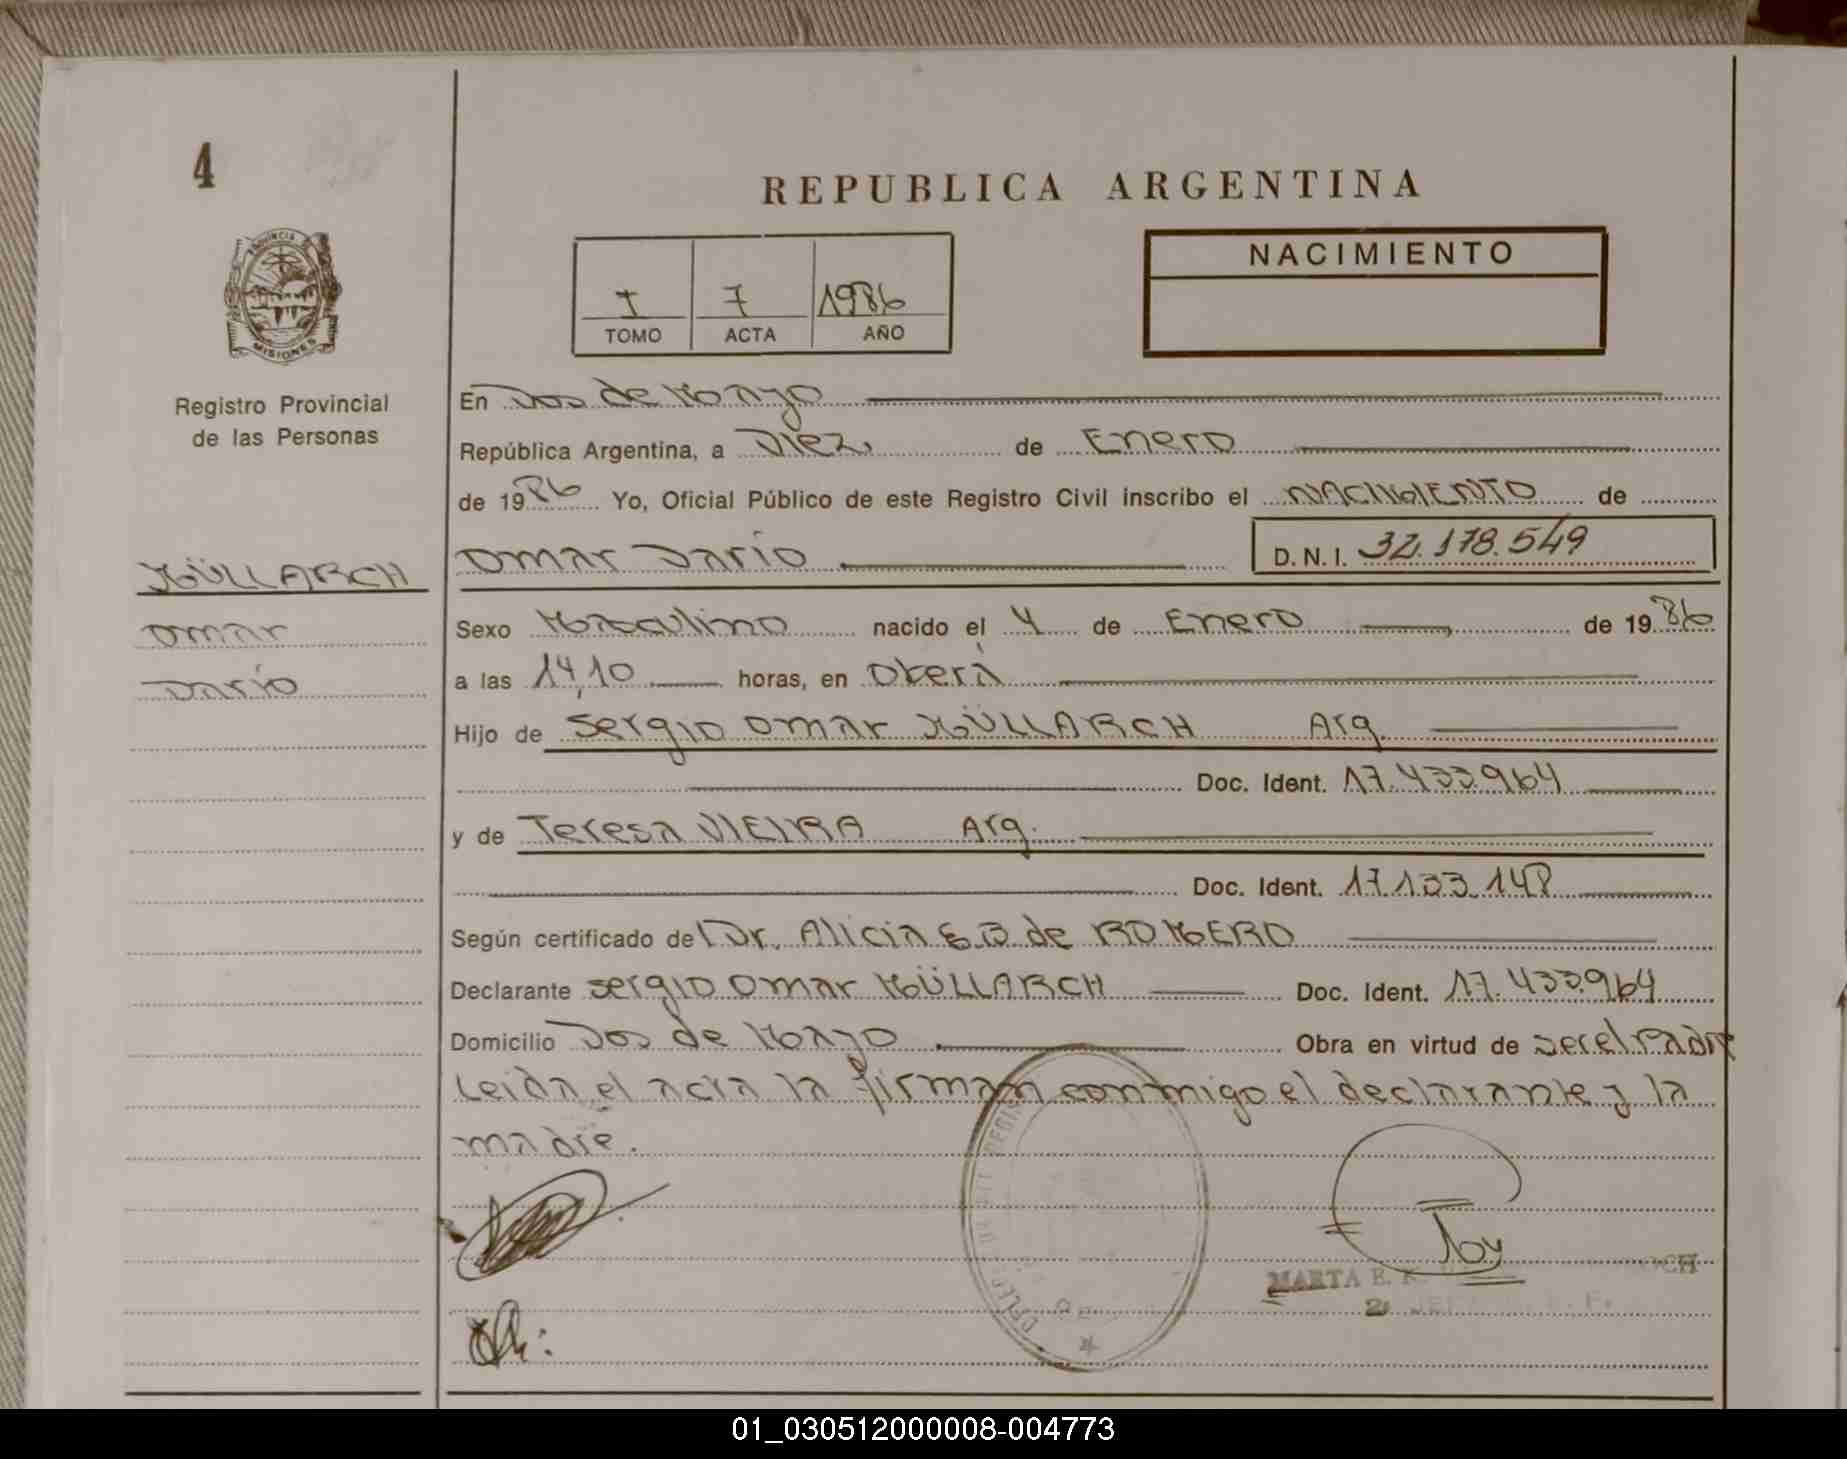 4
REPUBLICA ARGENTINA
NACIMIENTO
I 7 1986
TOMO ACTA AÑO
PROVINCIA DE
MISIONES
Registro Provincial
de las Personas
En Dos de Mayo
República Argentina, a Diez de Enero
de 1986 Yo, Oficial Público de este Registro Civil inscribo el NACIMIENTO de
MÜLLARCH Omar Darío D.N.I. 32.178.549
Omar
Darío
Sexo Masculino nacido el 4 de Enero de 1986
a las 14,10 horas, en Oberá
Hijo de Sergio Omar MÜLLARCH Arg.
Doc. Ident. 17.433.964
y de Teresa VIEIRA Arg.
Doc. Ident. 17.133.148
Según certificado de Dr. Alicia de ROMERO
Declarante Sergio Omar MÜLLARCH Doc. Ident. 17.433.964
Domicilio Dos de Mayo Obra en virtud de Ser el Padre
Leida el acta la firman conmigo el declarante y la
madre.
MARTA E.
01_030512000008-004773